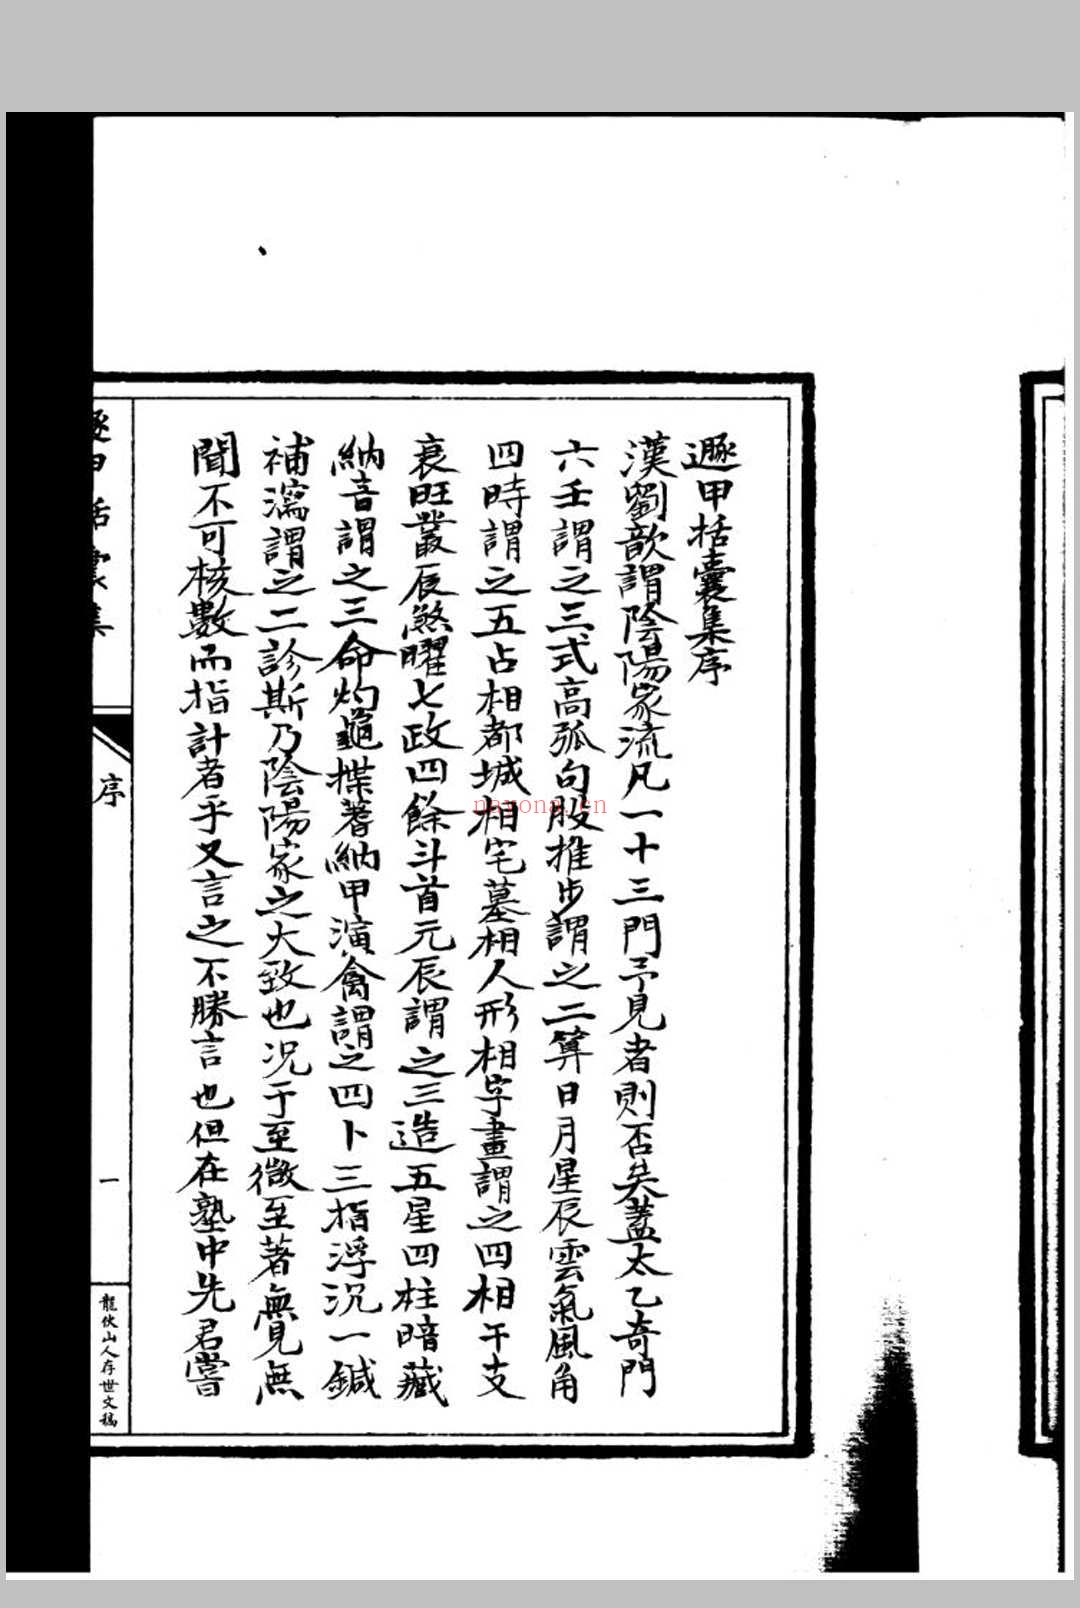 遯甲括囊集序
漢劉歆謂陰陽家流凡一十三門予見者則否矣蓋太乙奇門
六壬謂之三式高弧句股推步謂之二筭日月星辰雲氣風角
四時謂之五占相都城相宅墓相人形相字畫謂之四相干支
衰旺叢辰煞曜七政四餘斗首元辰謂之三造五星四柱暗藏
納音謂之三命灼龜揲蓍納甲演禽謂之四卜三指浮沉一鍼
補瀉謂之二診斯乃陰陽家之大致也況于至微至著無見無
聞不可核數而指計者乎又言之不勝言也但在塾中先君嘗
序
一
龍伏山人存世文稿
nayona.cn